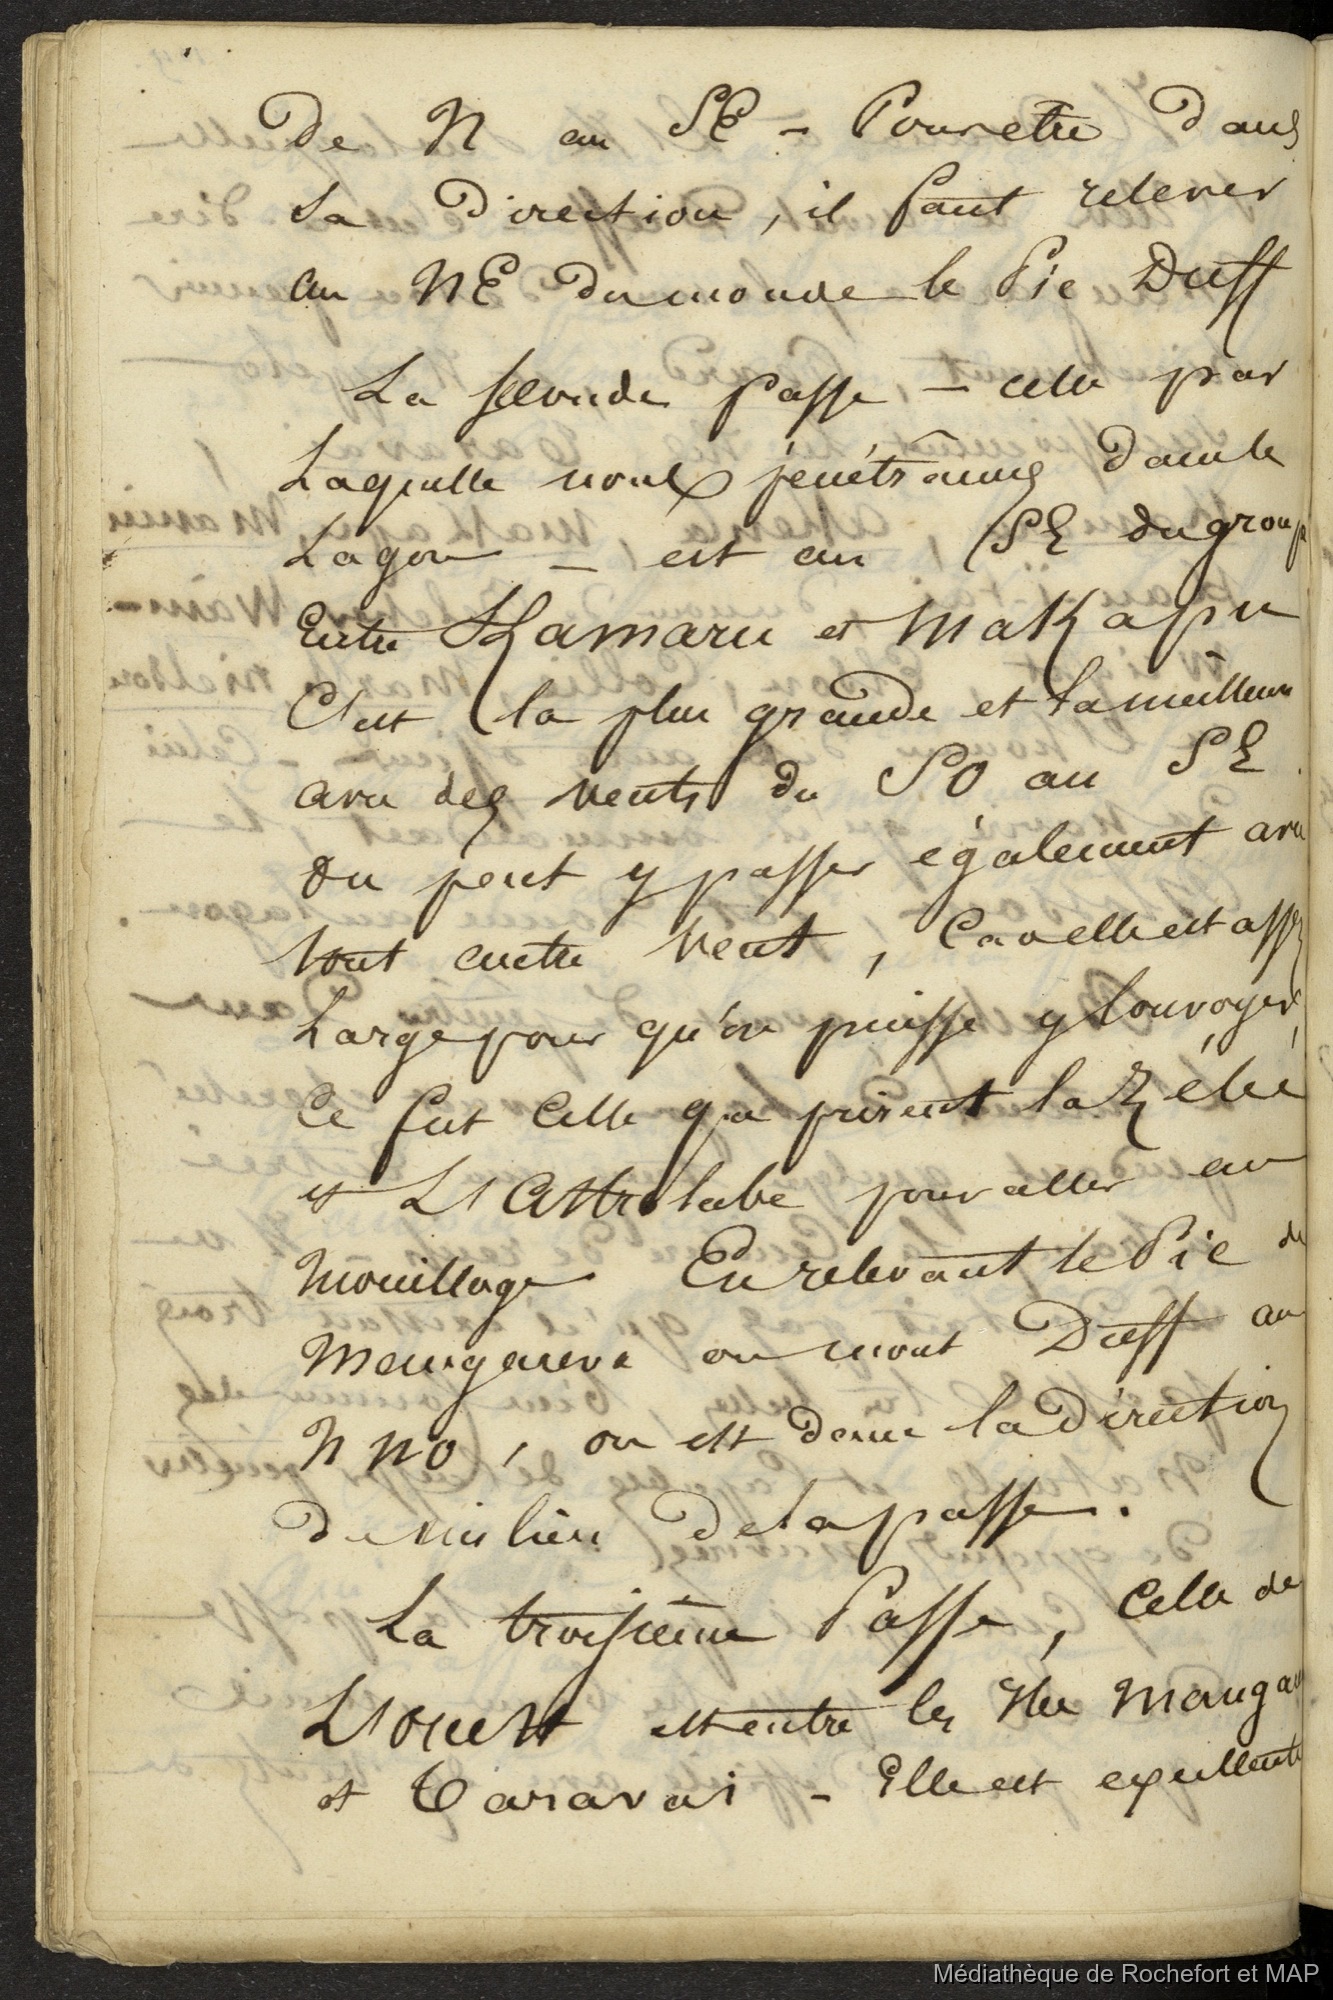 De N au SE - Pour etre dans
sa Direction, il faut relever
au NE du monde le Pic Duff
La seconde passe - celle par
Laquelle nous pénétrâmes dans le
Lagon - est au SE du groupe
Entre Kamaru et MaKapu
C'est la plus grande et la meilleure
avec des vents du SO au SE.
On peut y passer également avec
tout autre vent, Car elle est assez
Large pour qu'on puisse y louvoyer,
Ce fut Celle que prirent la Zélée
et L'Astrolabe pour aller au
Mouillage En relevant le Pic de
Mangareva ou mont Duff au
NNO, on est dans la direction
du milieu de la passe.
La troisième Passe, Celle de
L'ouest est entre les Iles Manga
et Taravai - Elle est excellente
Médiathèque de Rochefort et MAP